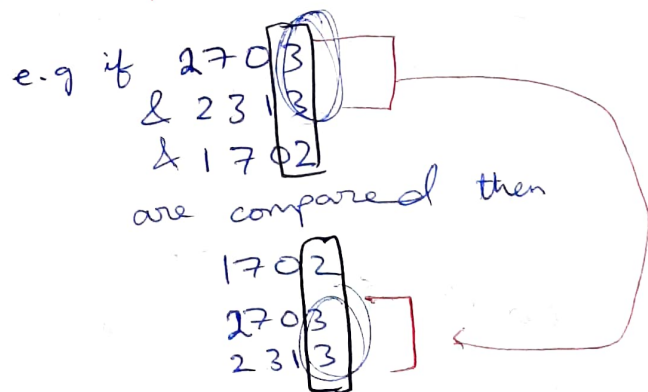 e.g if 2703
& 2313
& 1702
are compared then
1702
2703
2313